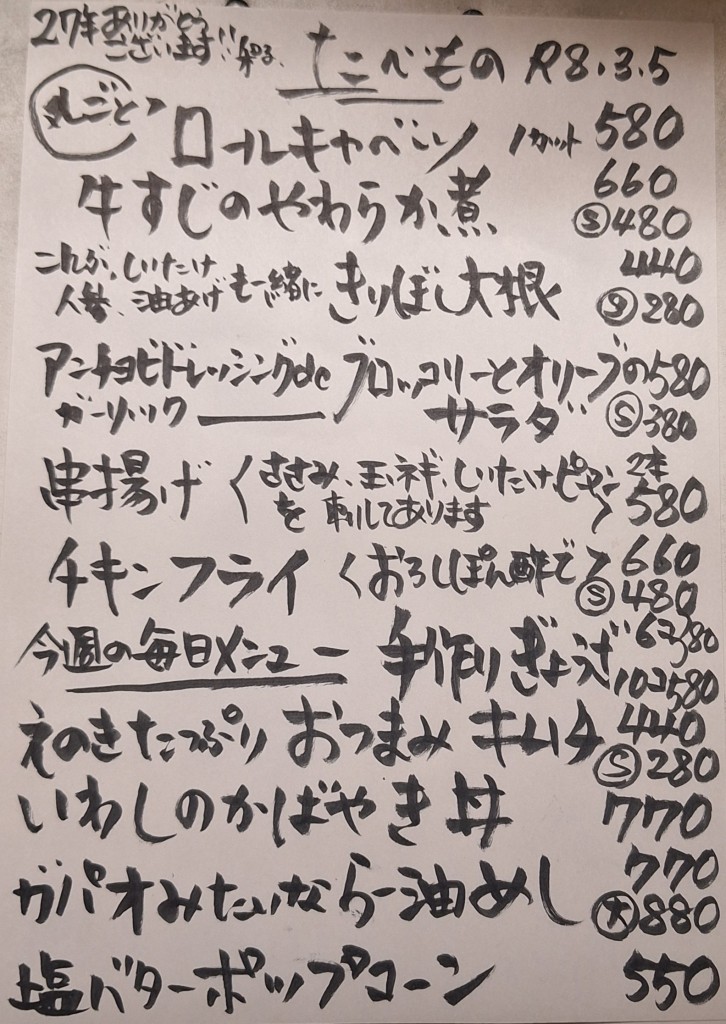 27年ありがとう
ございます!!
たべもの R8.3.5
丸ごと
ロールキャベツ 1カット 580
牛すじのやわらか煮 660
Ⓢ480
こんぶ、しいたけ
人参、油あげ も一緒に きりぼし大根 440
Ⓢ280
アンチョビドレッシングde ブロッコリーとオリーブの 580
ガーリック サラダ Ⓢ380
串揚げ くささみ、玉ネギ、しいたけピーマン 2本
を刺してあります> 580
チキンフライ くおろしぽん酢で> 660
Ⓢ480
今週の毎日メニュー 手作りぎょうざ 6コ380
10コ580
えのきたっぷり おつまみキムチ 440
Ⓢ280
いわしのかばやき丼 770
ガパオみたいならー油めし 770
㊅880
塩バターポップコーン 550